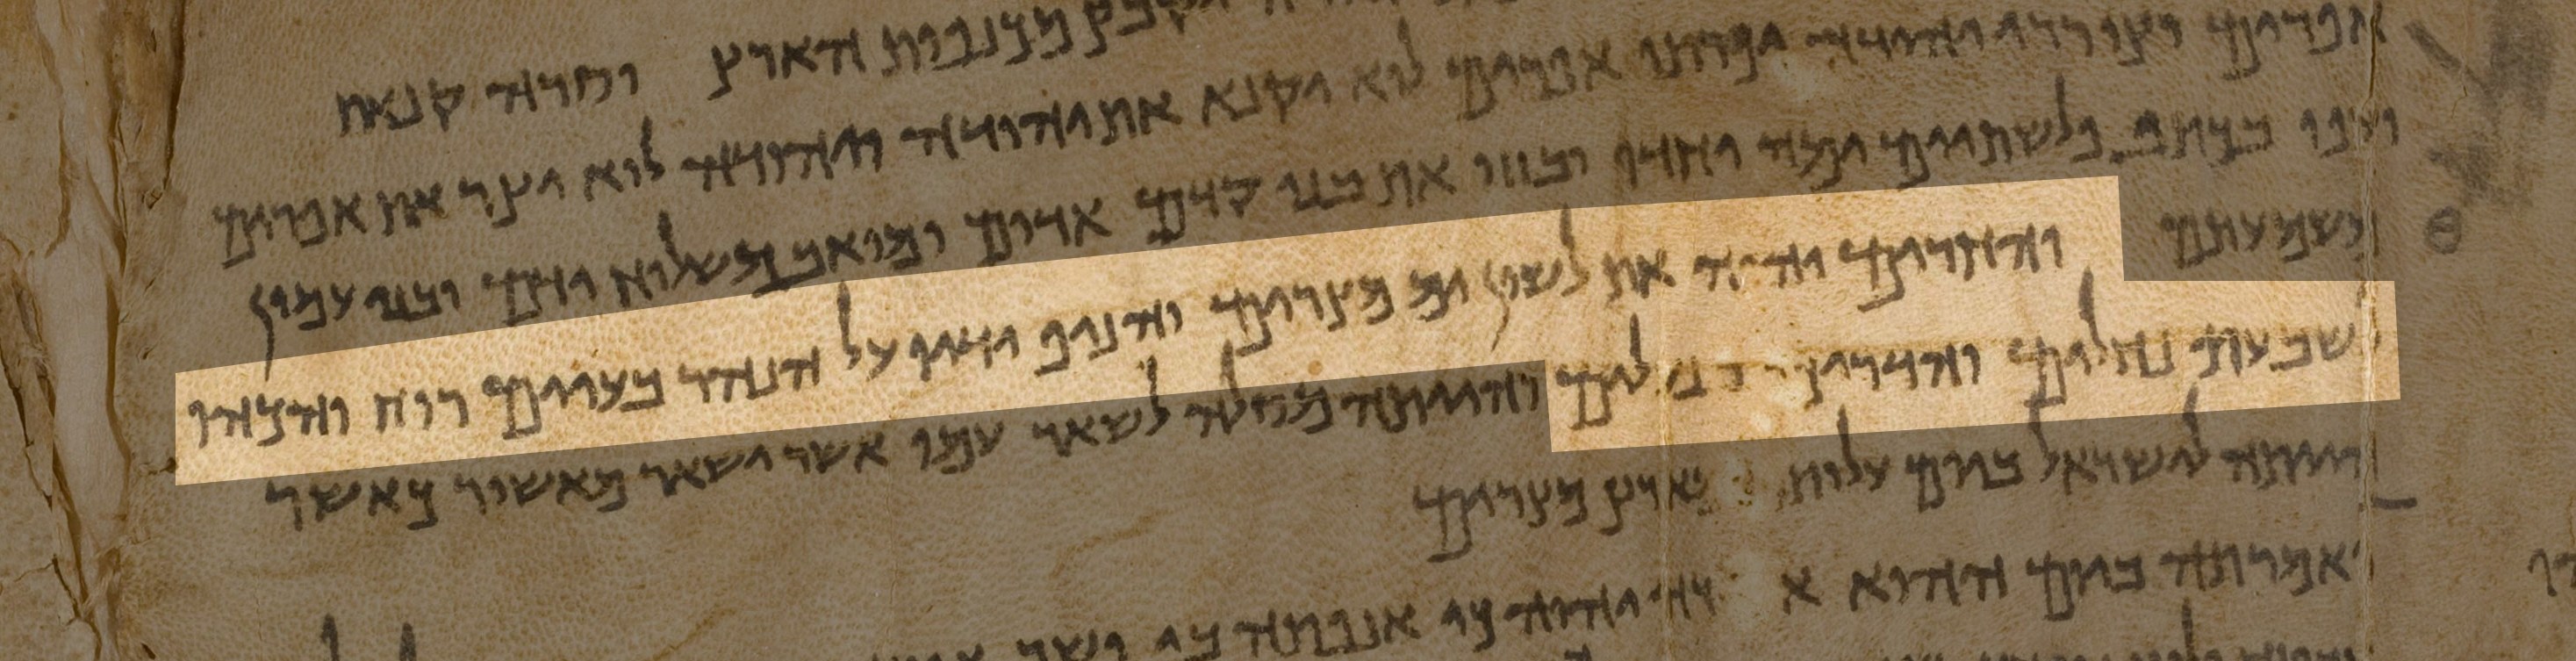 יקבץ מכנפות הארץ וסרה קנאת
אפרים וצוררי יהודה יכרתו אפרים לוא יקנא את יהודה ויהודה לוא יצר את אפרים
ועפו בכתף פלשתיים ימה יחדו ובזזו את בני קדם אדום ומואב משלוח ידם ובני עמון
משמעתם והחרים יהוה את לשון ים מצרים והניף ידיו על הנהר בעיים רוח והכהו
לשבעת נחלים והדריכו בנעלים והייתה מסלה לשאר עמו אשר ישאר מאשור כאשר
הייתה לישראל ביום עלותו מארץ מצרים
ואמרתה ביום ההוא אודך יהוה כיא אנפתה בי ישוב